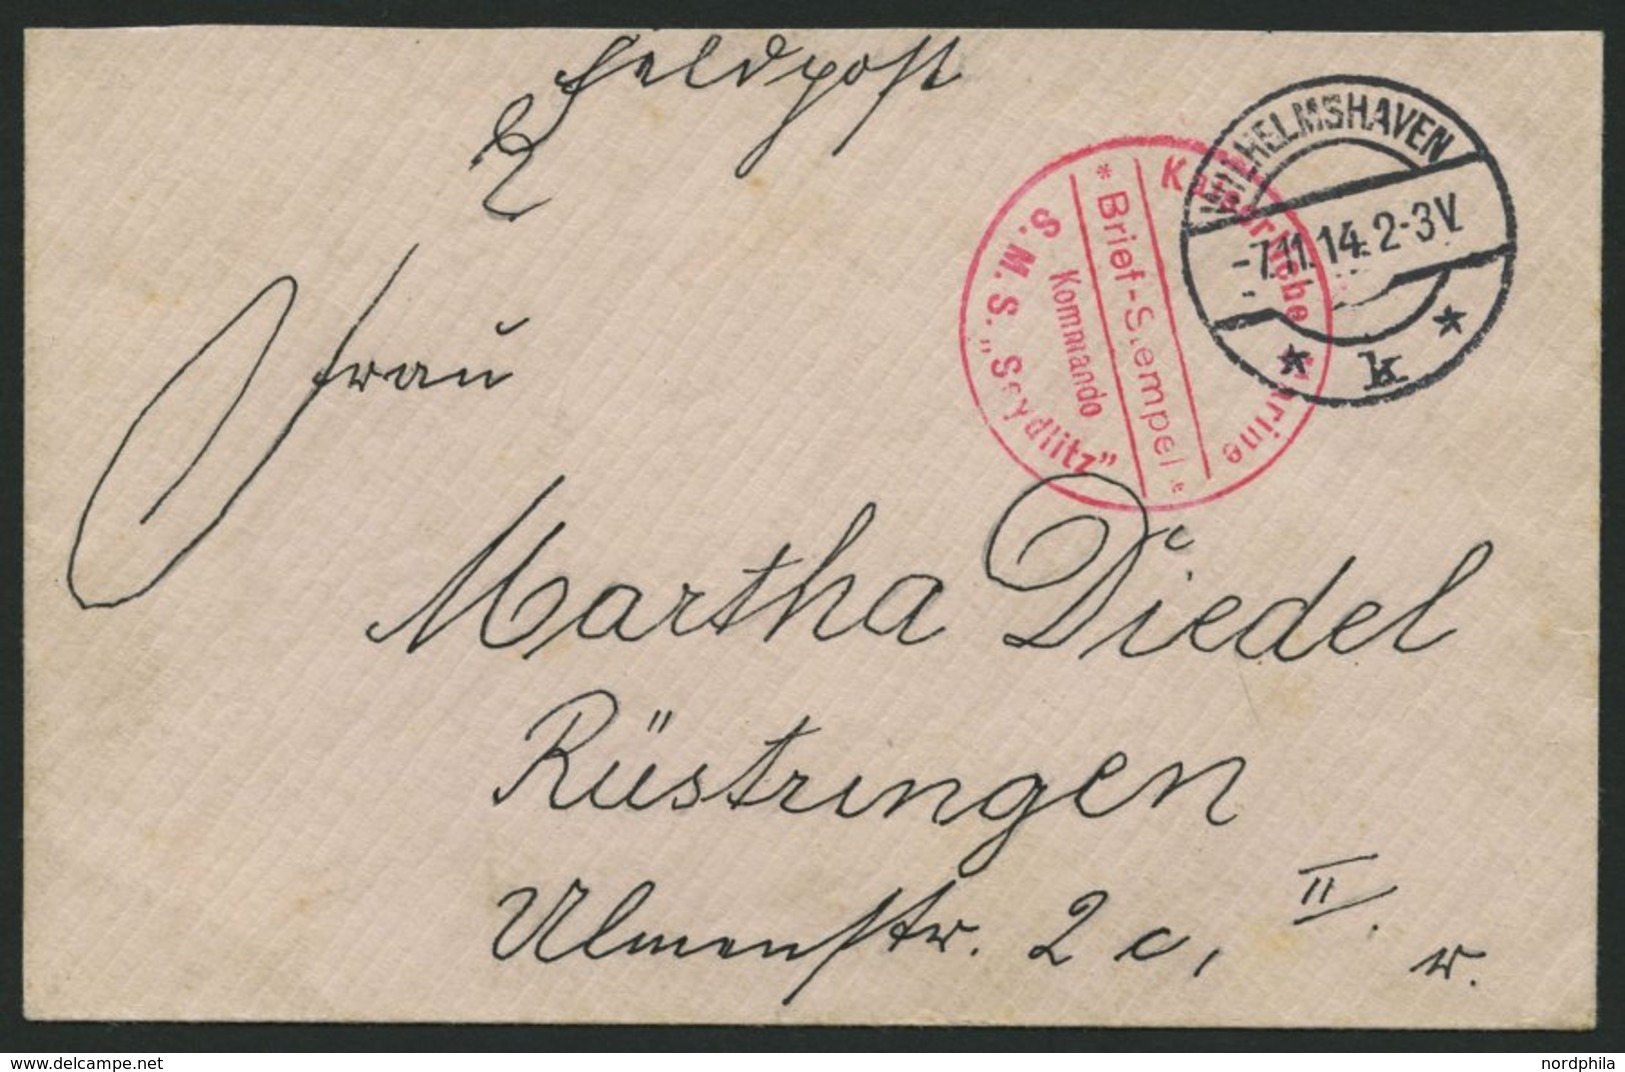 Feldpost
WILHELMSHAVEN
-7.11.14.2-3V.
* k *
Kaiserliche Marine
* Brief-Stempel *
Kommando
S.M.S. „Seydlitz"
Frau
Martha Diedel
Rüstringen
Ulmenstr. 2c, II. r.
delcampe.net
nordphila